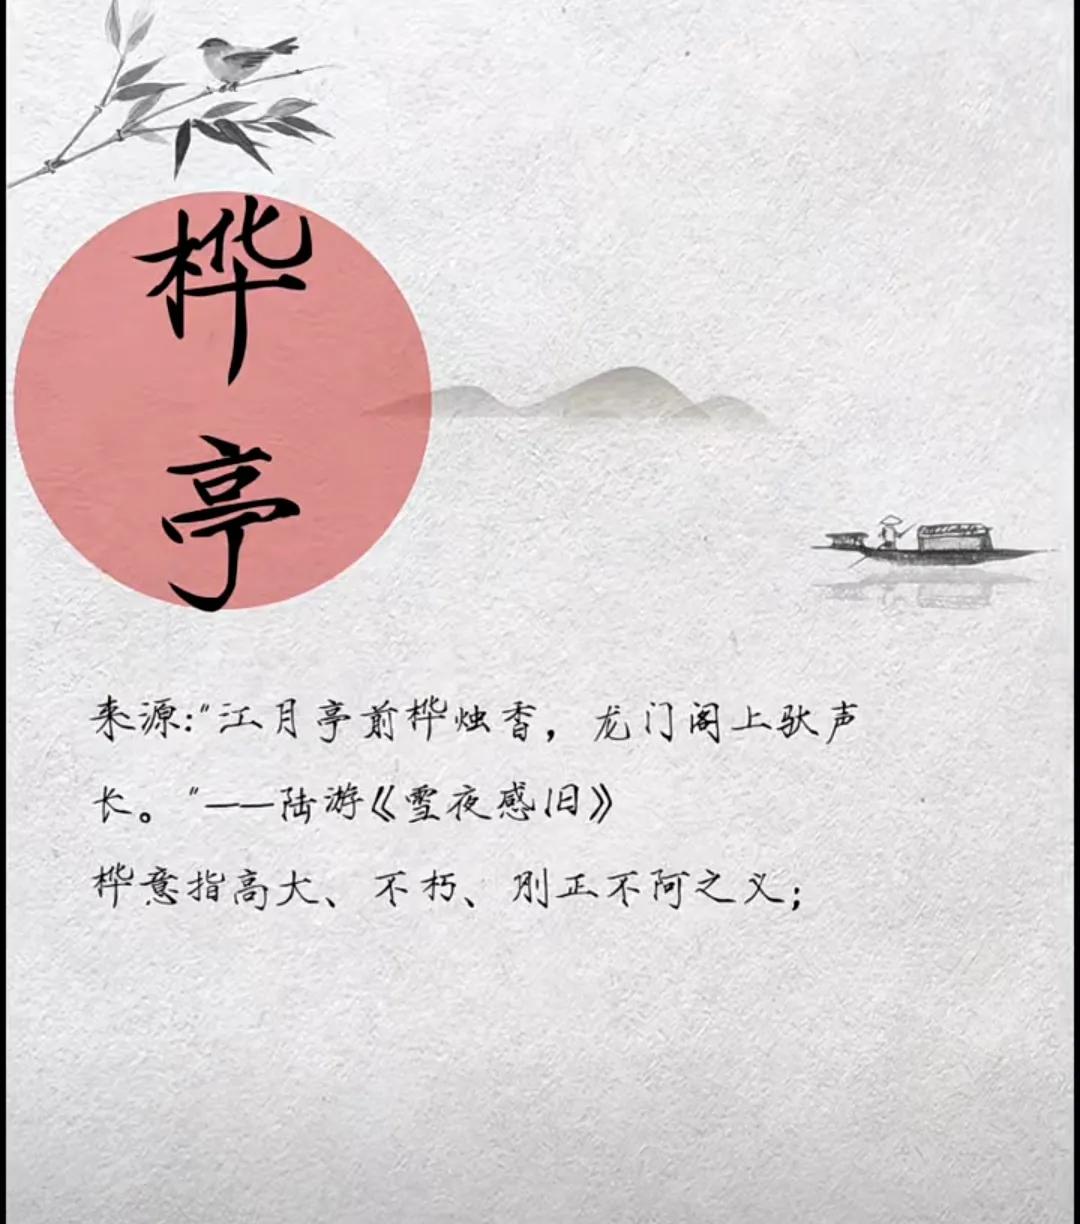 桦
亭
来源:"江月亭前桦烛香，龙门阁上驮声
长。"——陆游《雪夜感旧》
桦意指高大、不朽、刚正不阿之义；